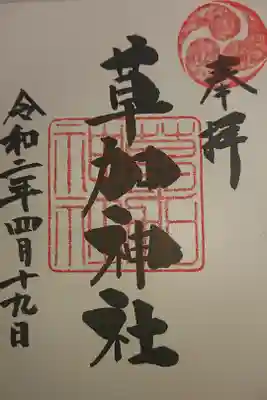 奉拝
草加神社
令和二年四月十九日